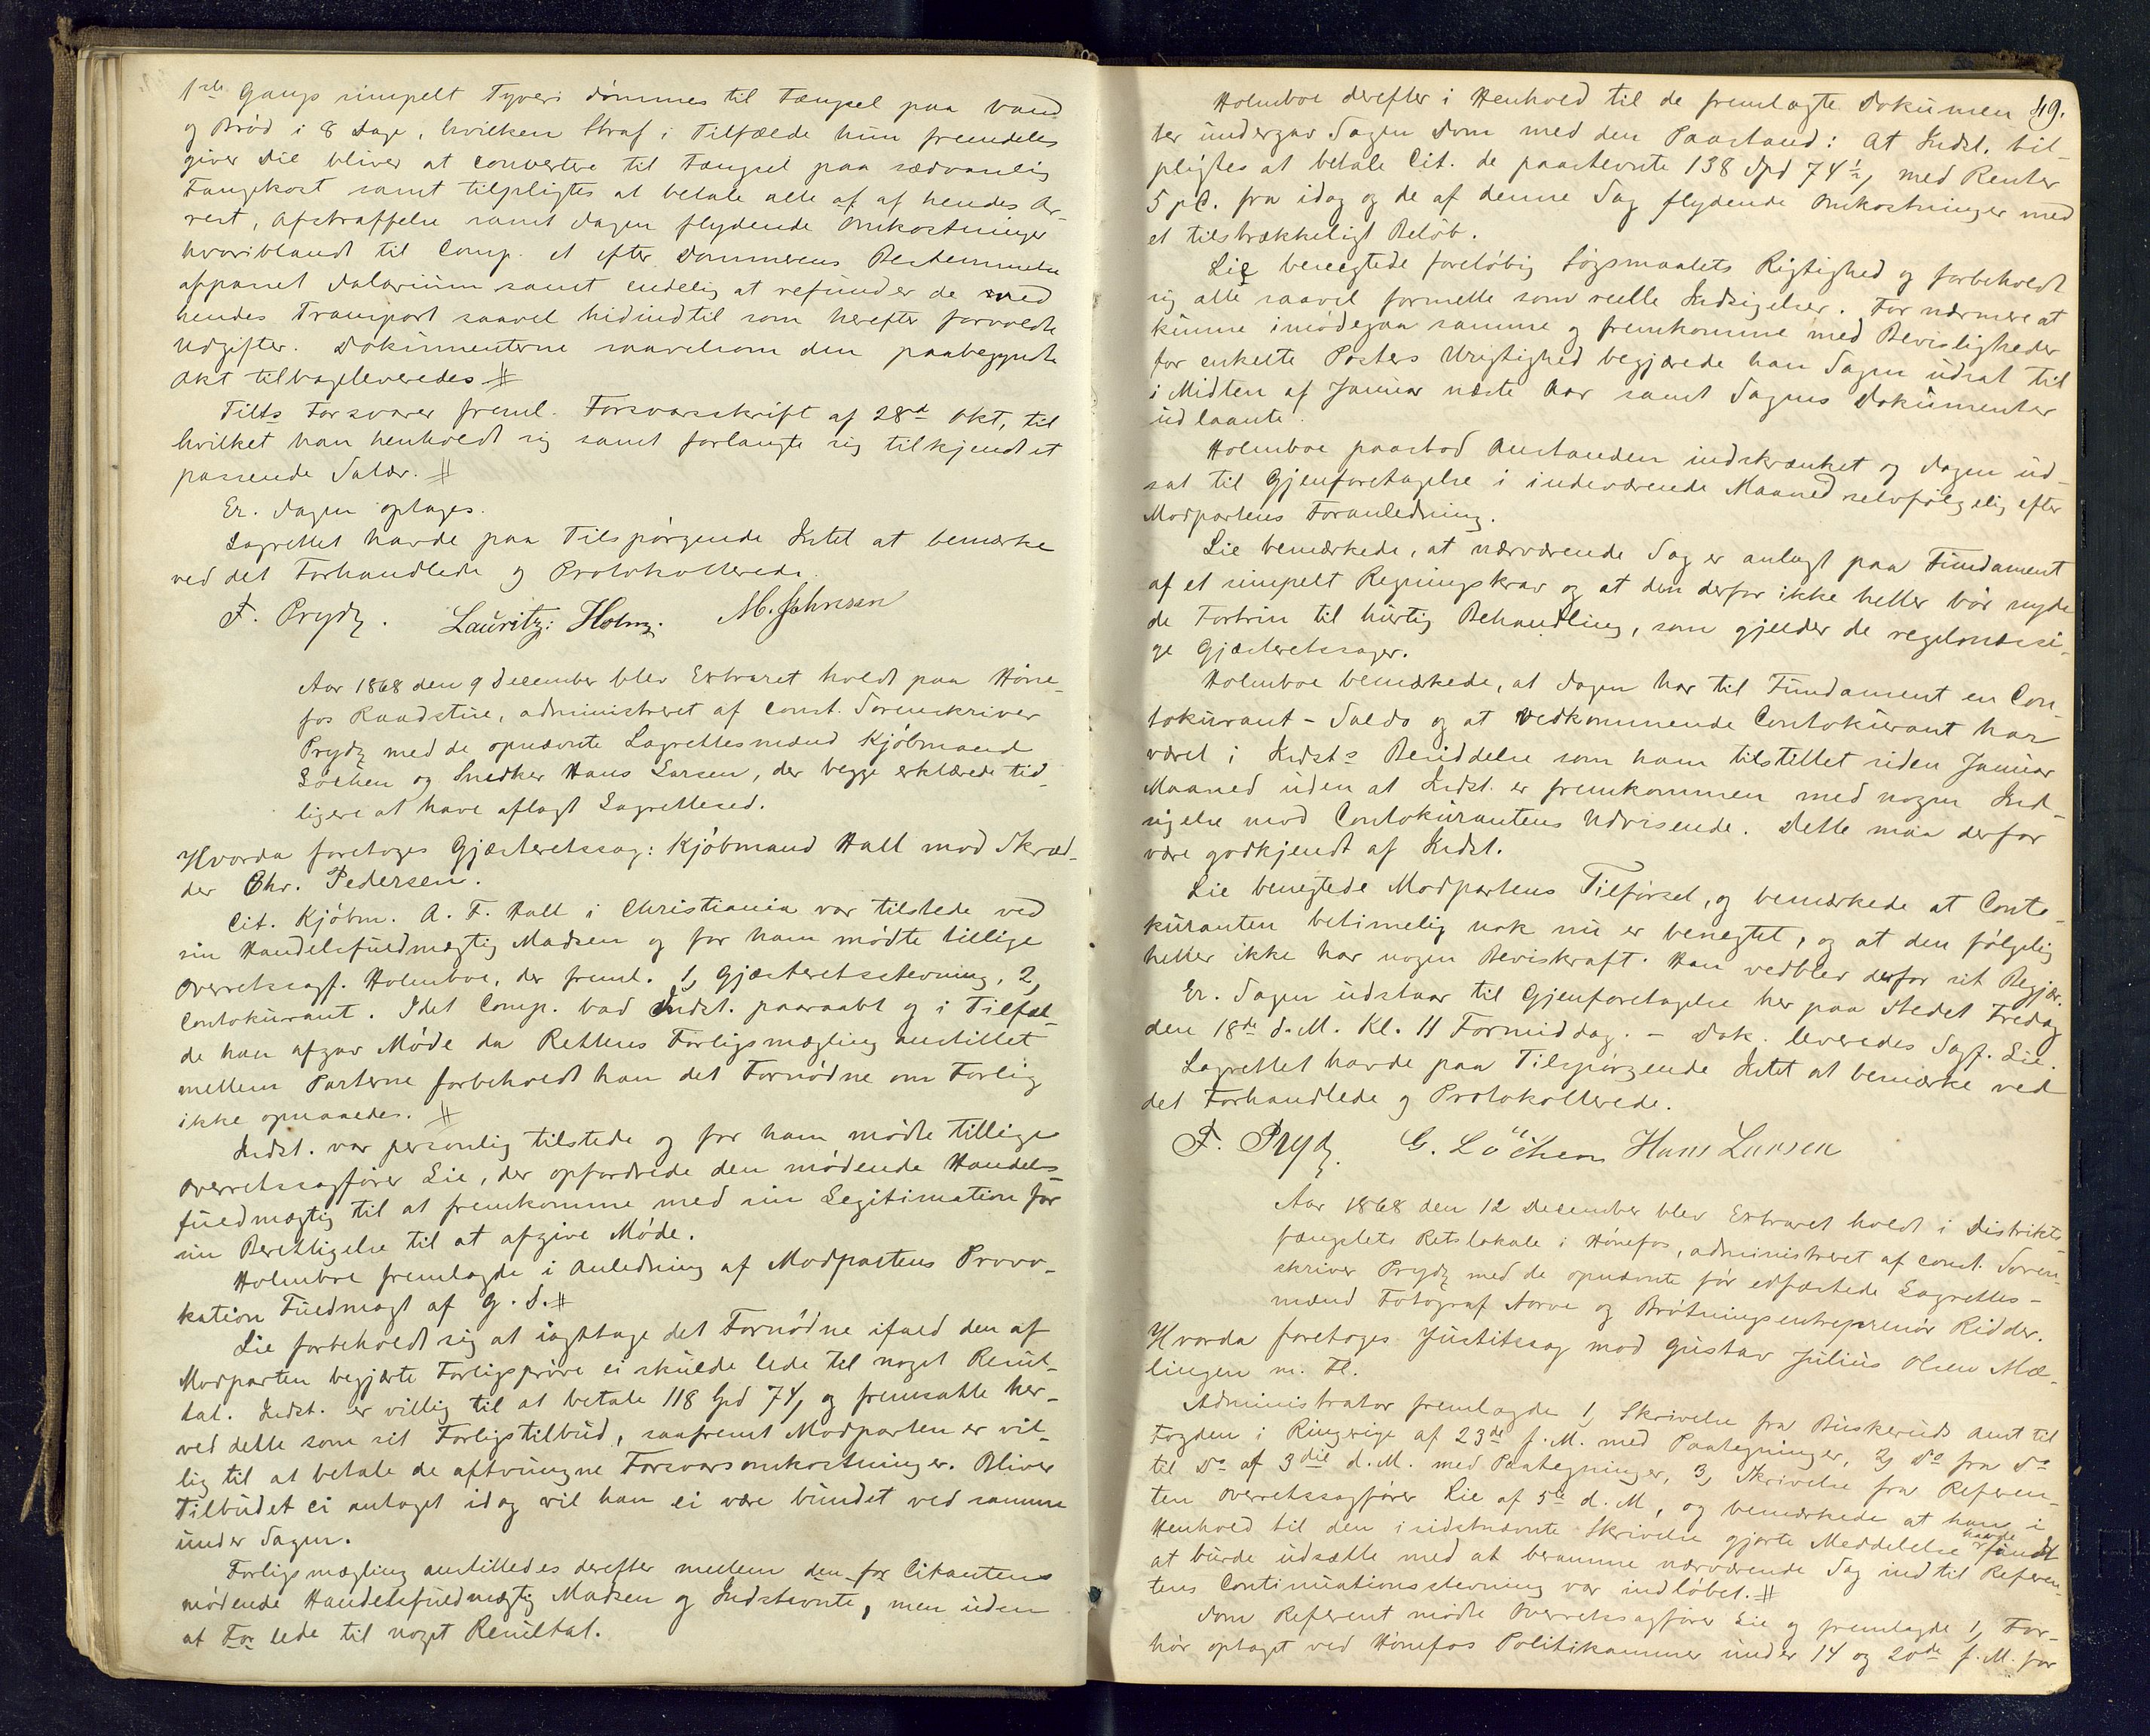 1ste Gangs simpelt Tyveri dømmes til Fængsel paa Vand
og Brød i 8 Dage, hvilken Straf i Tilfælde hun fremdeles
giver Die bliver at convertere til Fængsel paa sædvanlig
Fangekost samt tilpligtes at betale alle af af hendes Ar-
rest, Afstraffelse samt Sagen flydende Omkostninger
hvoriblandt til Comp. et efter Dommerens Bestemmelse
afpasset Salærium samt endelig at refundere de ved
hendes Transport saavel hidindtil som herefter forvoldte
Udgifter. Dokumenterne saavelsom den paabegyndte
Akt tilbageleveredes #
Tilts Forsvarer freml. Forsvarsskrift af 28d Okt, til
hvilket han henholdt sig samt forlangte sig tilkjendt et
passende Salær. #
Er. Sagen optages.
Lagrettet havde paa Tilspørgende Intet at bemærke
ved det Forhandlede og Protokollerede.
F. Prydz. Lauritz: Holm. M. Johnsen
Aar 1868 den 9 December blev Extraret holdt paa Høne-
fos Raadstue, administreret af const. Sorenskriver
Prydz med de opnævnte Lagrettesmænd Kjøbmand
Løchen og Snedker Hans Larsen, der begge erklærede tid-
ligere at have aflagt Lagretteed.
Hvorda foretoges Gjæsteretssag: Kjøbmand Hall mod Skræd-
der Chr. Pedersen.
Cit. Kjøbm. A. F. Hall i Christiania var tilstede ved
sin Handelsfuldmægtig Madsen og for ham mødte tillige
Overretssagf. Holmboe, der freml. 1, Gjæsteretsstevning, 2,
Contokurant. Idet Comp. bad Indst. paaraabt og i Tilfæl-
de han afgav Møde da Rettens Forligsmægling anstillet
mellem Parterne forbeholdt han det Fornødne om Forlig
ikke opnaaedes. #
Indst. var personlig tilstede og for ham mødte tillige
Overretssagfører Lie, der opfordrede den mødende Handels-
fuldmægtig til at fremkomme med sin Legitimation for
sin Berettigelse til at afgive Møde.
Holmboe fremlagde i Anledning af Modpartens Provo-
kation Fuldmagt af g. D. #
Lie forbeholdt sig at iagttage det Fornødne ifald den af
Modparten begjærte Forligsprøve ei skulde lede til noget Resul-
tat. Indst. er villig til at betale 118 Spd 74, og fremsatte her-
ved dette som sit Forligstilbud, saafremt Modparten er vil-
lig til at betale de aftvungne Forsvarsomkostninger. Bliver
Tilbudet ei antaget idag vil han ei være bundet ved samme
under Sagen.
Forligsmægling anstilledes derefter mellem den for Citanten
mødende Handelsfuldmægtig Madsen og Indstevnte, men uden
at For lede til noget Resultat.
49.
Holmboe derefter i Henhold til de fremlagte Dokumen
ter undergav Sagen Dom med den Paastand: At Indst. til-
pligtes at betale Cit. de paastevnte 138 Spd 74½, med Renter
5 pC. fra idag og de af denne Sag flydende Omkostninger med
et tilstrækkeligt Beløb.
Lie benegtede foreløbig Søgsmaalets Rigtighed og forbeholdt
sig alle saavel formelle som reelle Indsigelser. For nærmere at
kunne imødegaa samme og fremkomme med Bevisligheder
for enkelte Posters Urigtighed begjærede han Sagen udsat til
i Midten af Januar næste Aar samt Sagens Dokumenter
udlaante.
Holmboe paastod Anstanden indskrænket og Sagen ud-
sat til Gjenforetagelse i indeværende Maaned selvfølgelig efter
Modpartens Foranledning.
Lie bemærkede, at nærværende Sag er anlagt paa Fundament
af et simpelt Regningskrav og at den derfor ikke heller bør nyde
de Fortrin til hurtig Behandling, som gjelder de regelmæssi-
ge Gjæsteretssager.
Holmboe bemærkede, at Sagen har til Fundament en Con-
tokurant-Saldo og at vedkommende Contokurant har
været i Indsts Besiddelse som ham tilstillet siden Januar
Maaned uden at Indst. er fremkommen med nogen Ind-
sigelse mod Contokurantens Udvisende. Dette maa derfor
være godkjendt af Indst.
Lie benegtede Modpartens Tilførsel, og bemærkede at Conto-
kuranten betimelig nok nu er benegtet, og at den følgelig
heller ikke har nogen Beviskraft. Han vedblev derfor sit Begjær.
Er. Sagen udstaar til Gjenforetagelse her paa Stedet Fredag
den 18de d. M. Kl. 11 Formiddag. - Dok. leveredes Sagf. Lie.
Lagrettet havde paa Tilspørgende Intet at bemærke ved
det Forhandlede og Protokollerede.
F. Prydz. G. Löchen Hans Larsen
Aar 1868 den 12 December blev Extraret holdt i Distrikts-
fængslets Retslokale i Hønefos, administreret af const. Soren-
skriver Prydz med de opnævnte før edfæstede Lagrettes-
mænd Fotograf Aarve og Brøtningsentreprenør Ridder.
Hvorda foretoges Justitssag mod Gustav Julius Olsen Mæ-
lingen m. Fl.
Administrator fremlagde 1, Skrivelse fra Buskeruds Amt til
Fogden i Ringerige af 23de f. M. med Paategninger, 2, Do fra Do
til Do af 3die d. M. med Paategninger, 3, Skrivelse fra Referen-
ten Overretssagfører Lie af 5te d. M., og bemærkede at han i
Henhold til den i sidstnævnte Skrivelse gjorte Meddelelse havde fundt
at burde udsætte med at beramme nærværende Sag indtil Referen-
tens Continuationsstevning var indløbet. #
Som Referent mødte Overretssagfører Lie og fremlagde 1, For-
hør optaget ved Hønefos Politikammer under 14 og 20de f. M. for